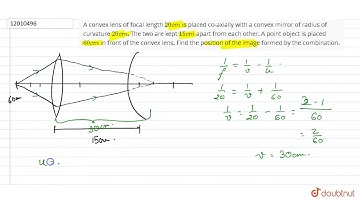 12010496
A convex lens of focal length 20cm is placed co-axially with a convex mirror of radius of
curvature 20cm. The two are kept 15cm apart from each other. A point object is placed
60cm in front of the convex lens. Find the position of the image formed by the combination.
1/f = 1/v - 1/u.
1/20 = 1/v + 1/60
1/v = 1/20 - 1/60 = 3-1/60
= 2/60
v = 30cm.
60cm
30cm.
15cm.
u
doubtnut